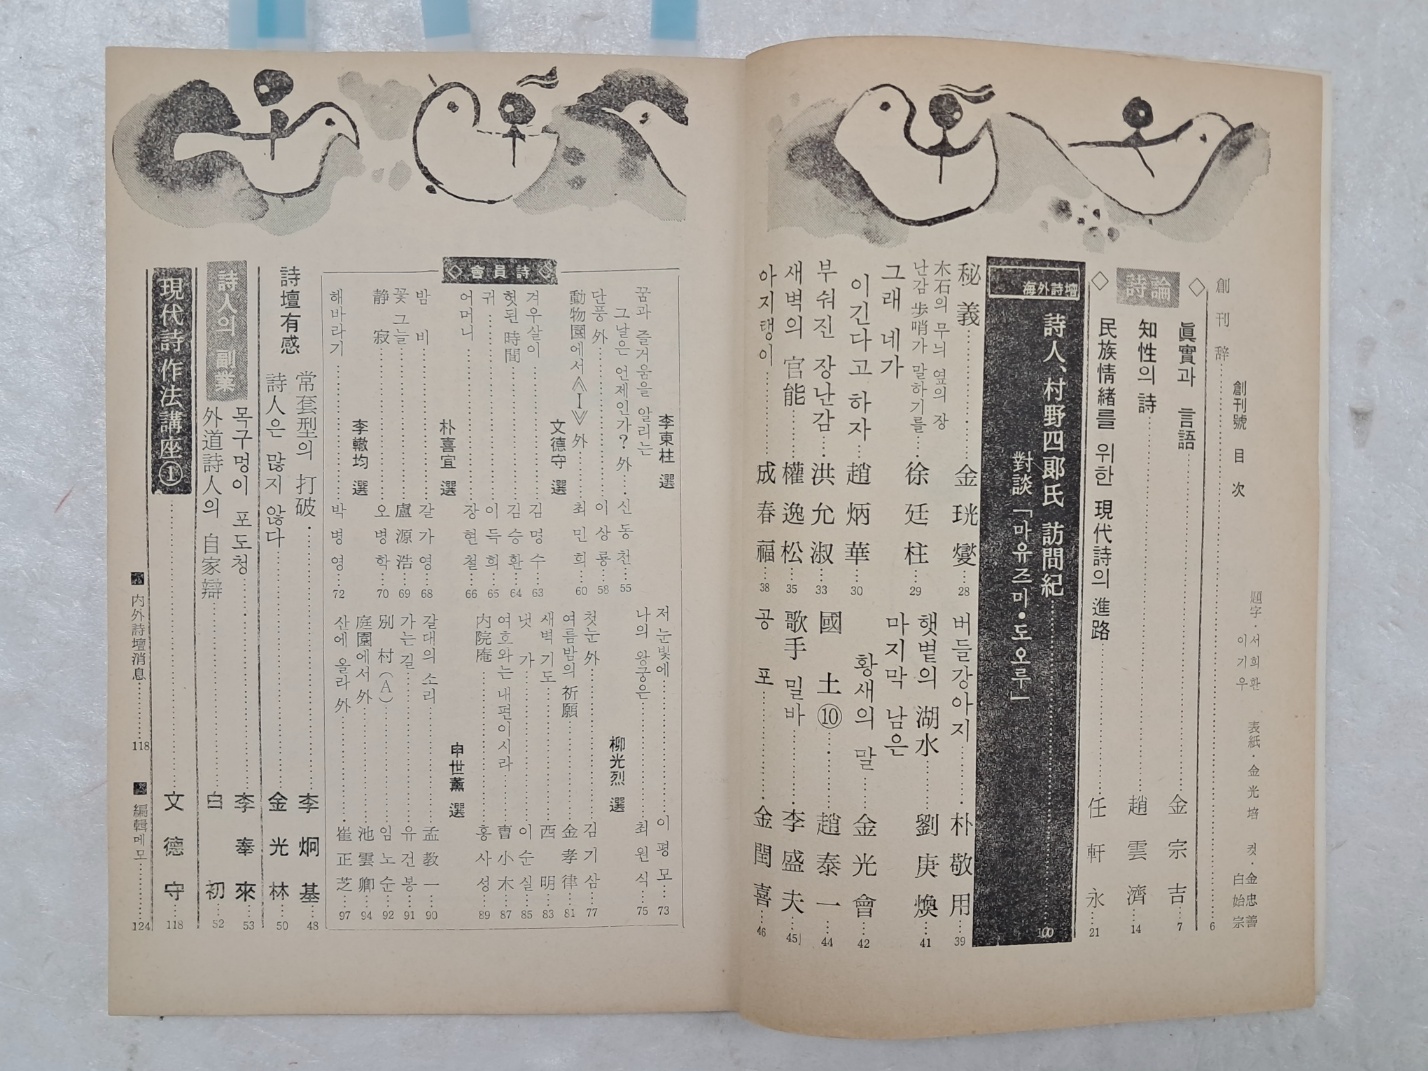 創刊號 目次
題字·서희환
이기우
表紙 金光培
컷·金忠善
白始宗
創刊辞……6
◇詩論◇
眞實과 言語……金宗吉……7
知性의 詩……趙雲濟……14
民族情緖를 위한 現代詩의 進路……任軒永……21
海外詩壇
詩人、村野四郞氏 訪問紀……100
對談「마유즈미·도오루」
秘義……金珖燮……28
木石의 무늬 옆의 장
난감 步哨가 말하기를
그래 네가……徐廷柱……29
이긴다고 하자……趙炳華……30
부숴진 장난감……洪允淑……33
새벽의 官能……權逸松……35
아지랭이……成春福……38
버들강아지……朴敬用……39
햇볕의 湖水……劉庚煥……41
마지막 남은
황새의 말……金光會……42
國土⑩……趙泰一……44
歌手 밀바……李盛夫……45
공포……金閏喜……46
◇會員詩◇
李東柱 選
꿈과 즐거움을 알리는
그날은 언제인가? 外……신동천……55
단풍 外……이상룡……58
動物園에서≪Ⅰ≫外……최민희……60
文德守 選
겨우살이……김명수……63
헛된 時間……김승환……64
귀……이득희……65
어머니……장현철……66
朴喜宜 選
밤비……갈가영……68
꽃그늘……盧源浩……69
静寂……오병학……70
李轍均 選
해바라기……박병영……72
저 눈빛에……이평모……73
나의 왕궁은……최원식……75
柳光烈 選
첫눈 外……김기삼……77
여름밤의 祈願……金孝律……81
새벽 기도……西明……83
냇가……이순실……85
여호와는 내편이시라……曺小木……87
内院庵……홍사성……89
申世薰 選
갈대의 소리……孟教一……90
가는 길……유건봉……91
別村(A)……임노순……92
庭園에서 外……池雲卿……94
산에 올라 外……崔正芝……97
詩壇有感
常套型의 打破……李炯基……48
詩人은 많지 않다……金光林……50
詩人의 副業
목구멍이 포도청……李奉來……53
外道詩人의 自家辯……白初……52
現代詩作法講座①……文德守……118
内外詩壇消息……118
編輯메모……124